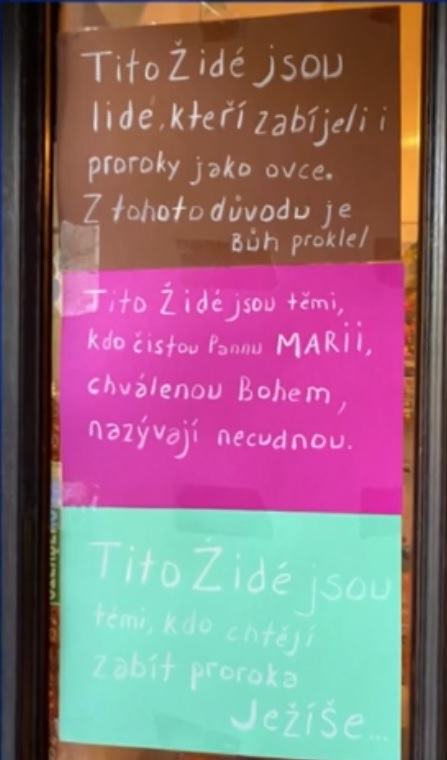 Tito Židé jsou
lidé, kteří zabíjeli i
proroky jako ovce.
Z tohoto důvodu je
Bůh proklel
Tito Židé jsou těmi,
kdo čistou Pannu MARii,
chválenou Bohem,
nazývají necudnou.
Tito Židé jsou
těmi, kdo chtějí
zabít proroka
Ježíše...